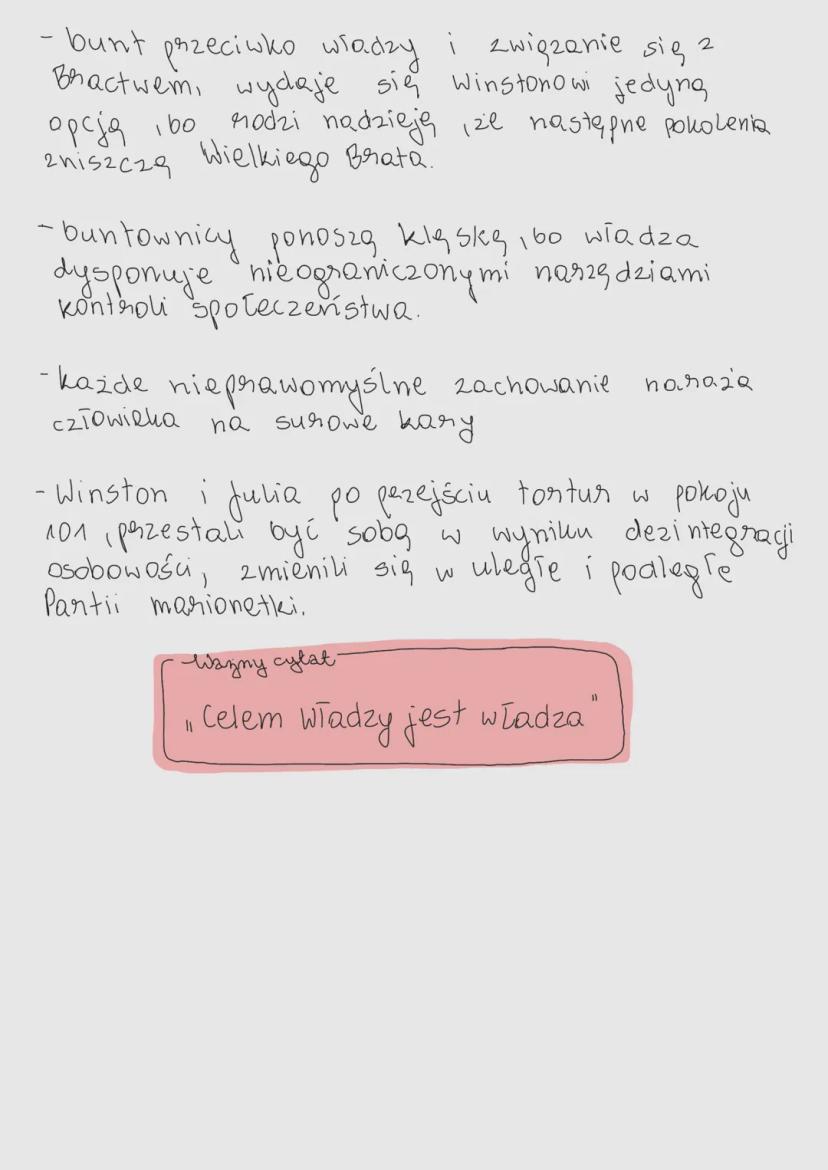 - bunt przeciwko władzy i związanie się z
Bractwem, wydaje się Winstonowi jedyną
opcją, bo rodzi nadzieję, że następne pokolenia
zniszczą Wielkiego Brata.
- buntownicy ponoszą klęskę, bo władza
dysponuje nieograniczonymi narzędziami
kontroli społeczeństwa.
- każde nieprawomyślne zachowanie naraża
człowieka na surowe kary
- Winston i Julia po pezejściu tortur w pokoju
101, przestali być sobą w wyniku dezintegracji
osobowości, zmienili się w uległe i podległe
Partii marionetki.
Ważny cytat
„Celem władzy jest władza"